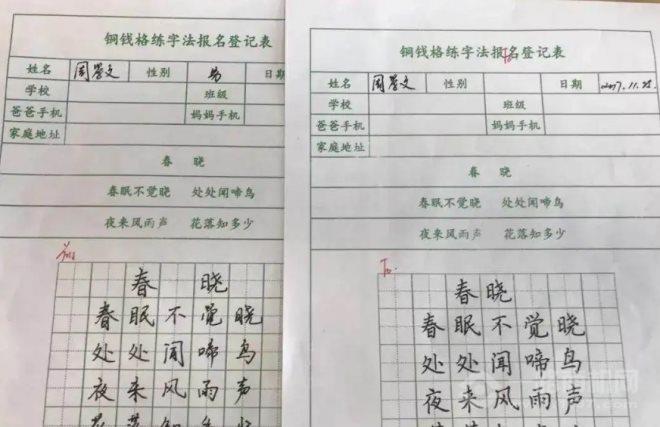 铜钱格练字法报名登记表
姓名 周 文 性别 男 日期
学校 班级
爸爸手机 妈妈手机
家庭地址
春 晓
春眠不觉晓 处处闻啼鸟
夜来风雨声 花落知多少
春 晓
春眠不觉晓
处处闻啼鸟
夜来风雨声
铜钱格练字法报名登记表
姓名 周 文 性别 日期 2017.11.25
学校 班级
爸爸手机 妈妈手机
家庭地址
春 晓
春眠不觉晓 处处闻啼鸟
夜来风雨声 花落知多少
春晓
春眠不觉晓
处处闻啼鸟
夜来风雨声